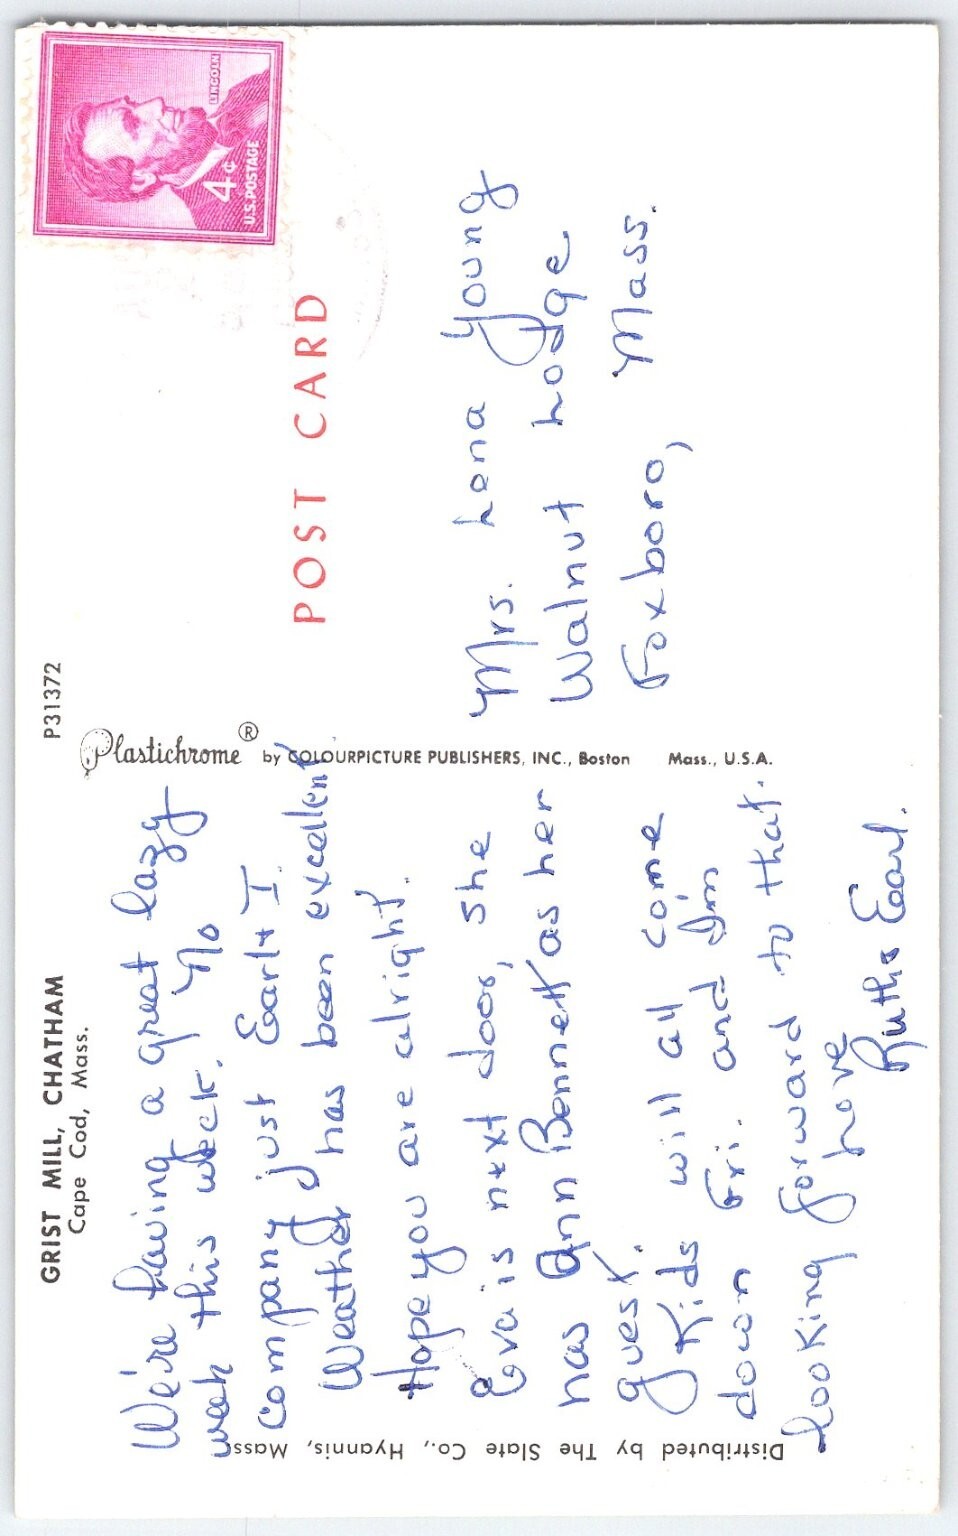 GRIST MILL, CHATHAM
Cape Cod, Mass.
We're having a great lazy
week this week. No
company just Earl & I.
Weather has been excellent
Hope you are alright.
Eva is next door, she
has Ann Bennett as her
guest.
Kids will all come
down Fri. and I'm
looking forward to that.
Love
Ruth & Earl.
Distributed by The Slate Co., Hyannis, Mass.
P31372
Plastichrome ® by COLOURPICTURE PUBLISHERS, INC., Boston Mass., U.S.A.
POST CARD
LINCOLN
4¢
U.S. POSTAGE
Mrs. Lena Young
Walnut Lodge
Foxboro,
Mass.